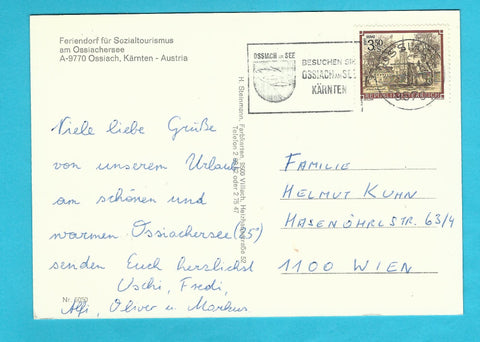 Feriendorf für Sozialtourismus
am Ossiachersee
A-9770 Ossiach, Kärnten - Austria
OSSIACH AM SEE
BESUCHEN SIE
OSSIACH AM SEE
KÄRNTEN
3.50
REPUBLIK ÖSTERREICH
Viele liebe Grüße
von unserem Urlaub
am schönen und
warmen Ossiachersee (25°)
senden Euch herzlichst
Uschi, Fredi,
Alfi, Oliver u. Markus
Nr. 6050
H. Steinmann, Farbkarten, 9500 Villach,
Telefon
oder 2 78 47
FAMILIE
HELMUT KUHN
HASENÖHRLSTR. 63/4
1100 WIEN